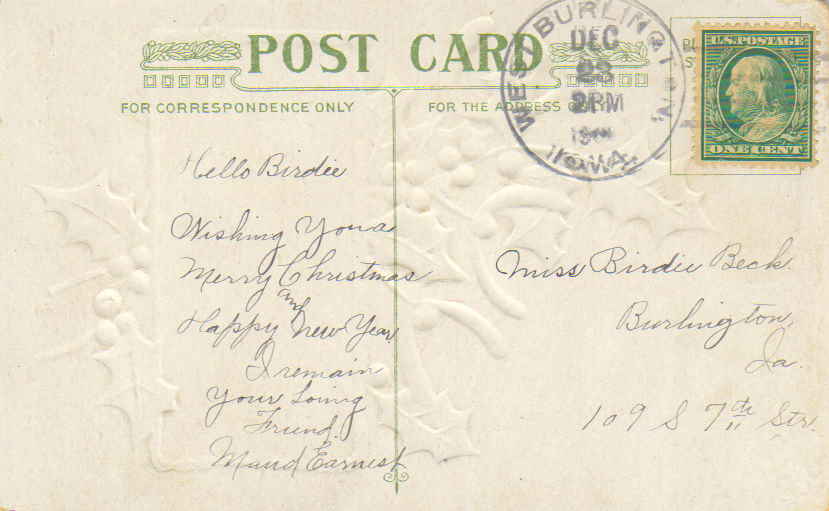 POST CARD
FOR CORRESPONDENCE ONLY
FOR THE ADDRESS
WEST BURLINGTON,
DEC
2 PM
IOWA
U.S. POSTAGE
ONE CENT
Hello Birdie
Wishing You a
Merry Christmas
and
Happy New Year
I remain
Your Loving
Friend.
Maud Earnest
Miss Birdie Beck.
Burlington,
Ia.
109 S 7th Str.